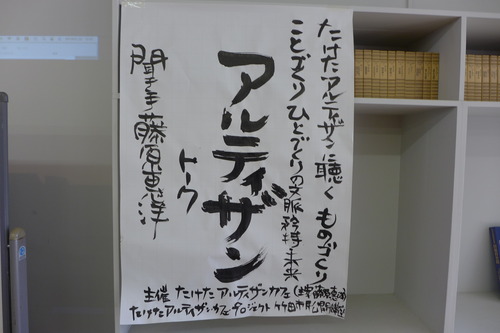 たけたアルティザンに聴く ものづくり
ことづくりひとづくりの文脈 矜持 未来
アルティザン
トーク
聞き手 藤原惠洋
主催 たけたアルティザンカフェ(主宰 藤原惠洋)
たけたアルティザンカフェプロジェクト 竹田市